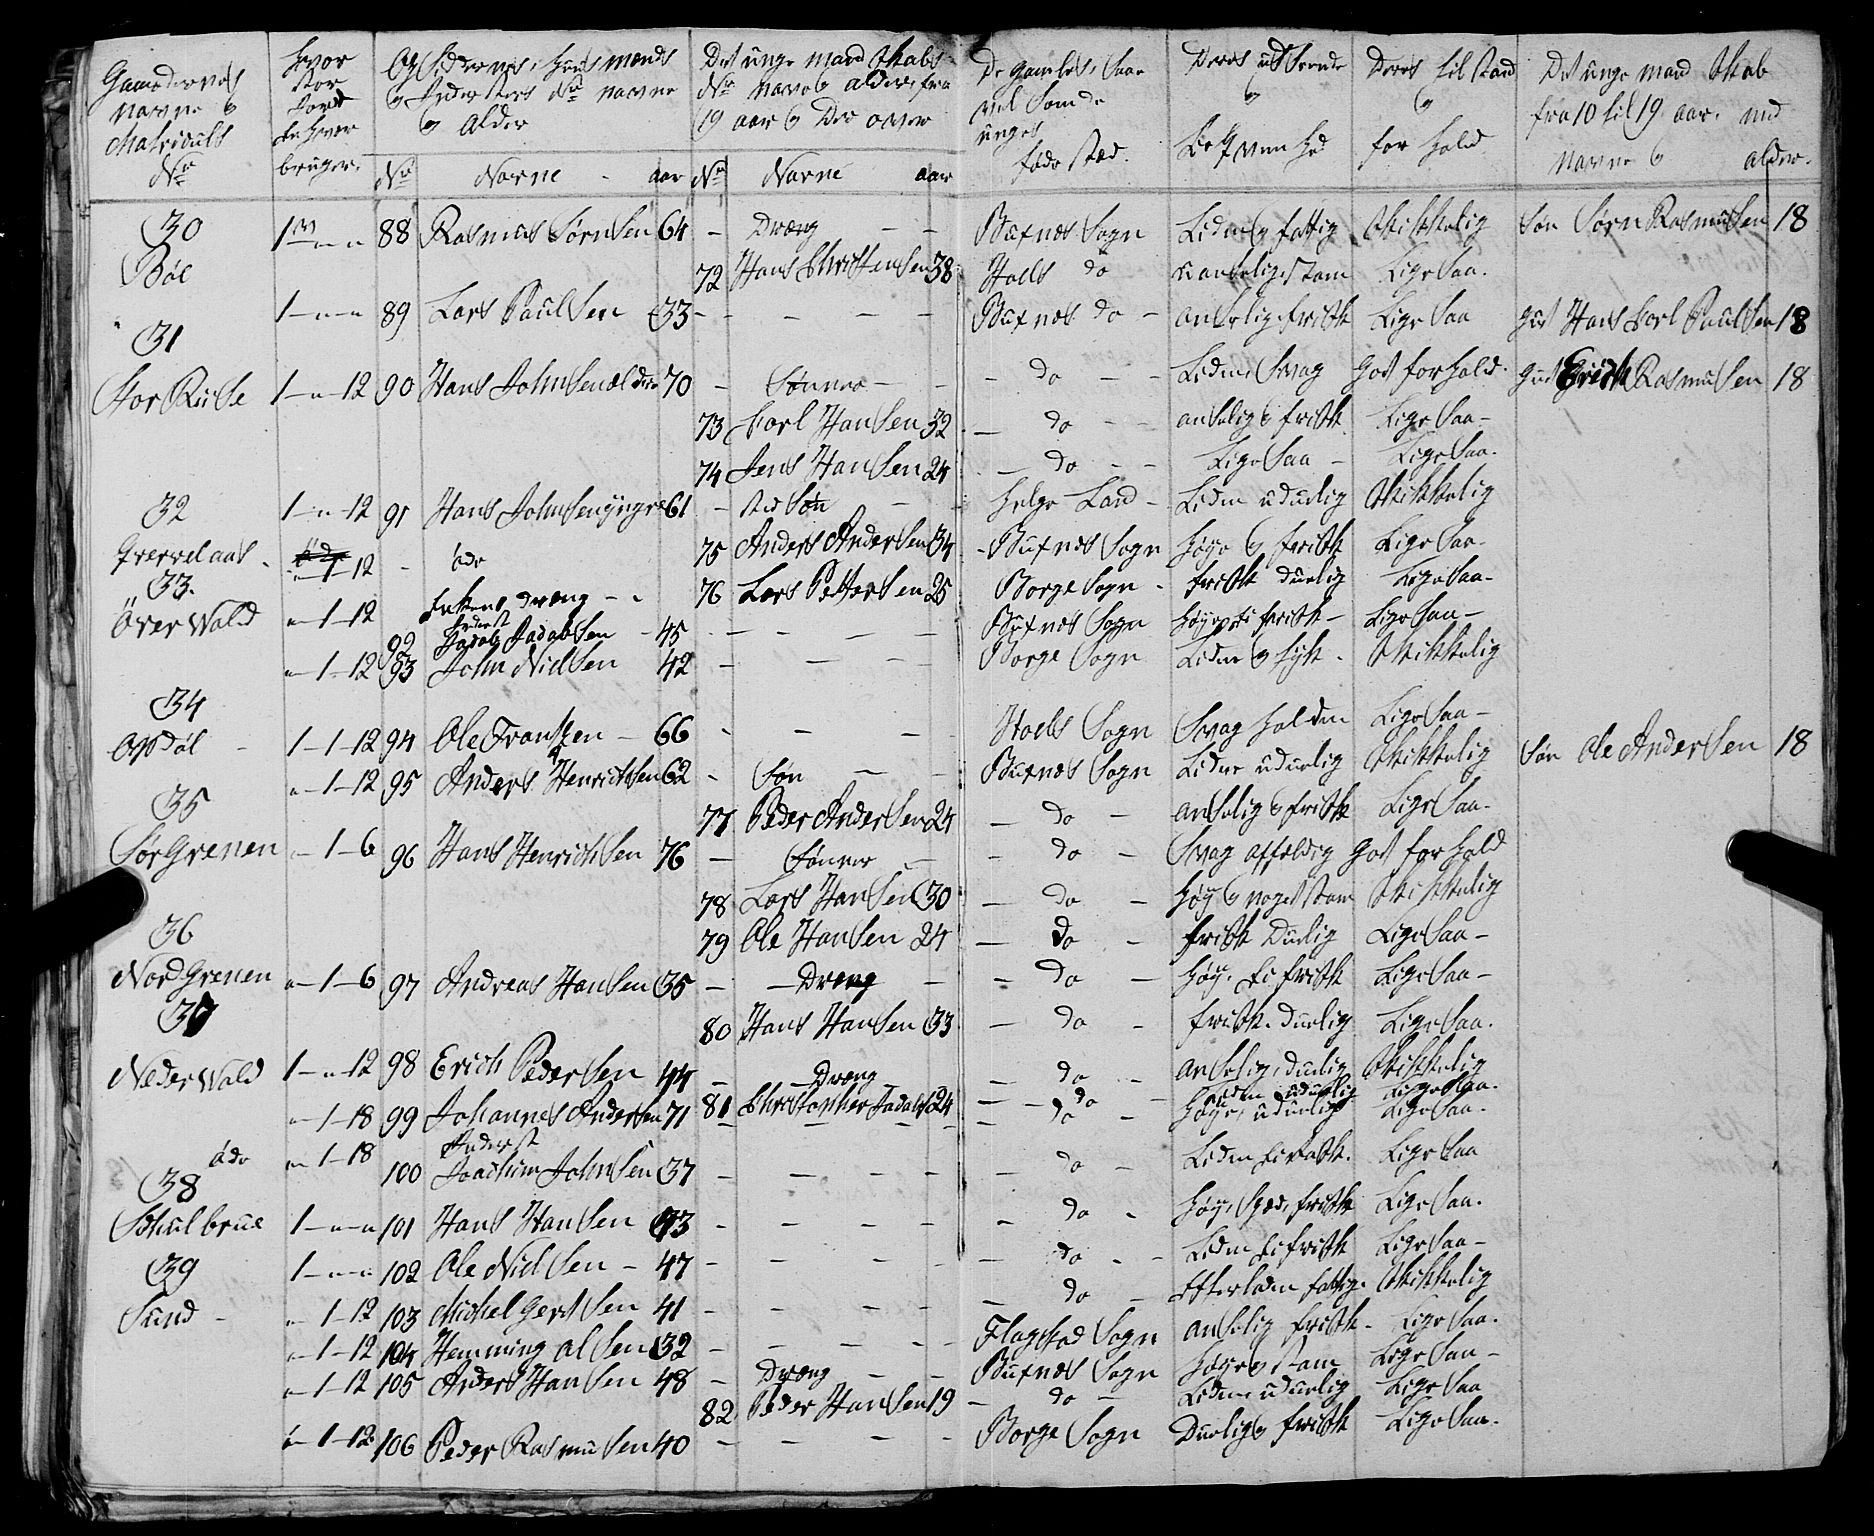 Gaardernes navne og Matriculs No
Hvor stor Jord Enhver bruger.
Opsiddernes, Huusmænds og Inderster No navne og Alder
Det unge mandskabs No navne og alder, fra 19 aar og Der over
De gamles, saa vel som de unges føde sted.
Deres udseende og Beqvemhed
Deres tilstand og forhold
Det unge mandskab fra 10 til 19 aar. med navne og alder.
No Navne aar No Navne aar
30 1 - " - " 88 Rasmus Sørnsen 64 - Dræng - - Buxnæs Sogn Liden og fattig Skikkelig Søn Sørn Rasmusen 18
Bøe 72 Hans Christensen 38 Hoels do uanselig stam Lige Saa.
1 - " - " 89 Lars Paulsen 33 - - - - Buxnæs do - anselig frisk Lige Saa Hans Carl Paulsen 18
31
Stor Ruse 1 - " - 12 90 Hans Johnsen ældre 70 - Sønner - - do - - Liden Svag God forhold. Erich Rasmusen 18
73 Carl Hansen 32 - do - - anselig og frisk Lige Saa -
74 Jens Hansen 24 - do - - Lige Saa - Lige Saa.
32 1 - " - 12 91 Hans Johnsen yngre 61 - sted Søn - Helge Land - Liden uduelig Skikkelig
75 Anders Andersen 34 - Buxnæs Sogn Høy og frisk Lige Saa.
" - 1 - 12 - øde
33. 76 Lars Pettersen 25 Borge Sogn - frisk Duelig Lige Saa -
Över Wold " - 1 - 12 Enkens dræng - -
Inderst
92 Jadob Jadobsen - 45 - - - - Buxnæs Sogn frisk - Lige Saa -
" - 1 - 12 93 John Nielsen 42 - - - Borge Sogn Liden og syk. Skikkelig
34
Opdøl - 1 - 1 - 12 94 Ole Frantzen - 66 - - - Hoels Sogn Svag Holden Lige Saa -
" - 1 - 12 95 Anders Henrichsen 62 - Søn - - Buxnæs Sogn Liden uduelig Skikkelig Søn Ole Andersen 18
35 77 Peder Andersen 24 - do - anselig og frisk Lige Saa.
Sør Grenen " - 1 - 6 96 Hans Henrichsen 76 - Sønner - - do - Svag affeldig God forhold
78 Lars Hansen 30 - do - Høy og noget stam Skikkelig
36 79 Ole Hansen 24 - do - frisk Duelig Lige Saa -
Nord Grenen " - 1 - 6 97 Andreas Hansen 35 - - Dræng - - do - Høy. Ei frisk Lige Saa -
37 80 Hans Hansen 33 - do - frisk. Duelig Lige Saa.
Neder Wold 1 - " - 12 98 Erich Pedersen 44 - - Dræng - - do - anselig, Duelig Skikkelig
81 Christopher Jadobs 24 - - do - Liden uduelig Lige Saa.
" - 1 - 18 99 Johannes Andersen 71 - - - - do - Høy, uduelig Lige Saa.
øde " - 1 - 18 Inderst
38 100 Joachim Johnsen 37 - - - - do - Liden Ei rask. Lige Saa
Schulbrue 1 - " - " 101 Hans Hansen 43 - - - - do - Høy, Spæd, frisk Lige Saa.
39 1 - " - " 102 Ole Nielsen - 47 - - - - do - Liden Ei frisk Lige Saa -
Sund - " - 1 - 12 103 Michel Gertsen 41 - - - - do - Efterladen fattig. Skikkelig
" - 1 - 12 104 Hemming Olsen 32 - - - Flagstad Sogn anselig frisk. Lige Saa.
" - 1 - 12 105 Anders Hansen 48 - Dræng - - Buxnæs Sogn Høy og stam Lige Saa -
82 Peder Hansen 19 - do - Liden uduelig Lige Saa
" - 1 - 12 106 Peder Rasmusen 40 - - - - Borge Sogn Duelig og frisk Lige Saa.